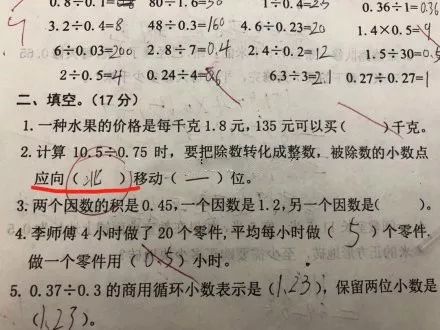 0.8÷0.1= 80÷1.6=50 1÷0.4=2.5 0.36÷1=0.36
3.2÷0.4=8 48÷0.3=160 4.6÷0.23=20 1.4×0.5=
6÷0.03=200 2.8÷7=0.4 2.4÷0.2=12 1.5÷30=0.5
2÷0.5=4 0.24÷4= 6.3÷3=2.1 0.27÷0.27=1
二、填空。(17分)
1.一种水果的价格是每千克1.8元,135元可以买( )千克。
2.计算 10.5÷0.75 时,要把除数转化成整数,被除数的小数点
应向(北)移动(一)位。
3.两个因数的积是0.45,一个因数是1.2,另一个因数是( )。
4.李师傅4小时做了20个零件,平均每小时做(5)个零件.
做一个零件用(0.5)小时。
5.0.37÷0.3的商用循环小数表示是(1.23),保留两位小数是
(1.23)。